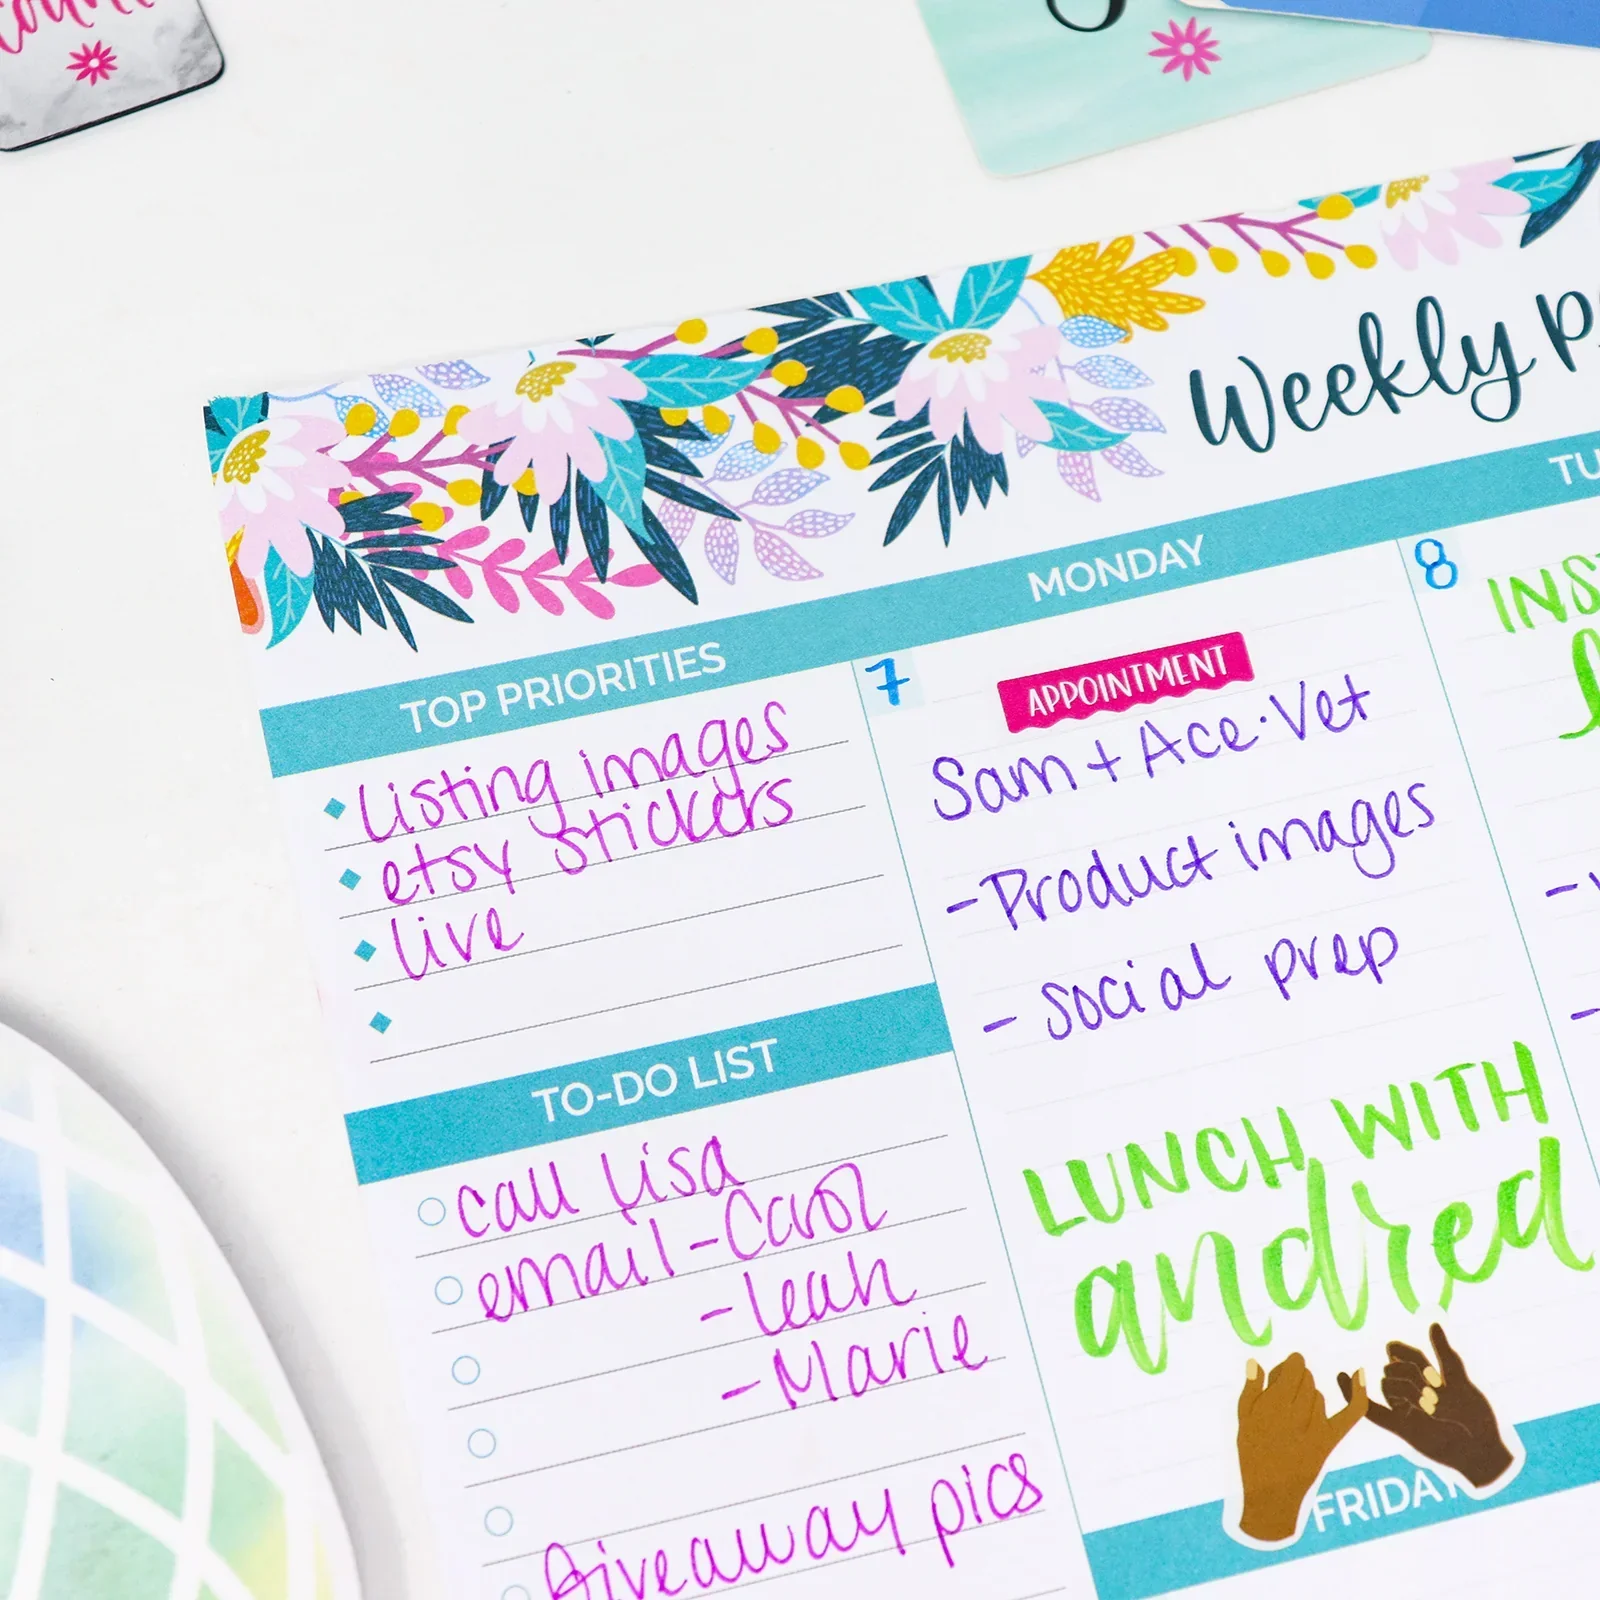 Weekly
TOP PRIORITIES
Listing images
etsy stickers
live
TO-DO LIST
call Lisa
email - Carol
- Leah
- Marie
Giveaway pics
MONDAY
7
APPOINTMENT
Sam + Ace · Vet
- Product images
- social prep
LUNCH WITH
andrea
FRIDAY
8